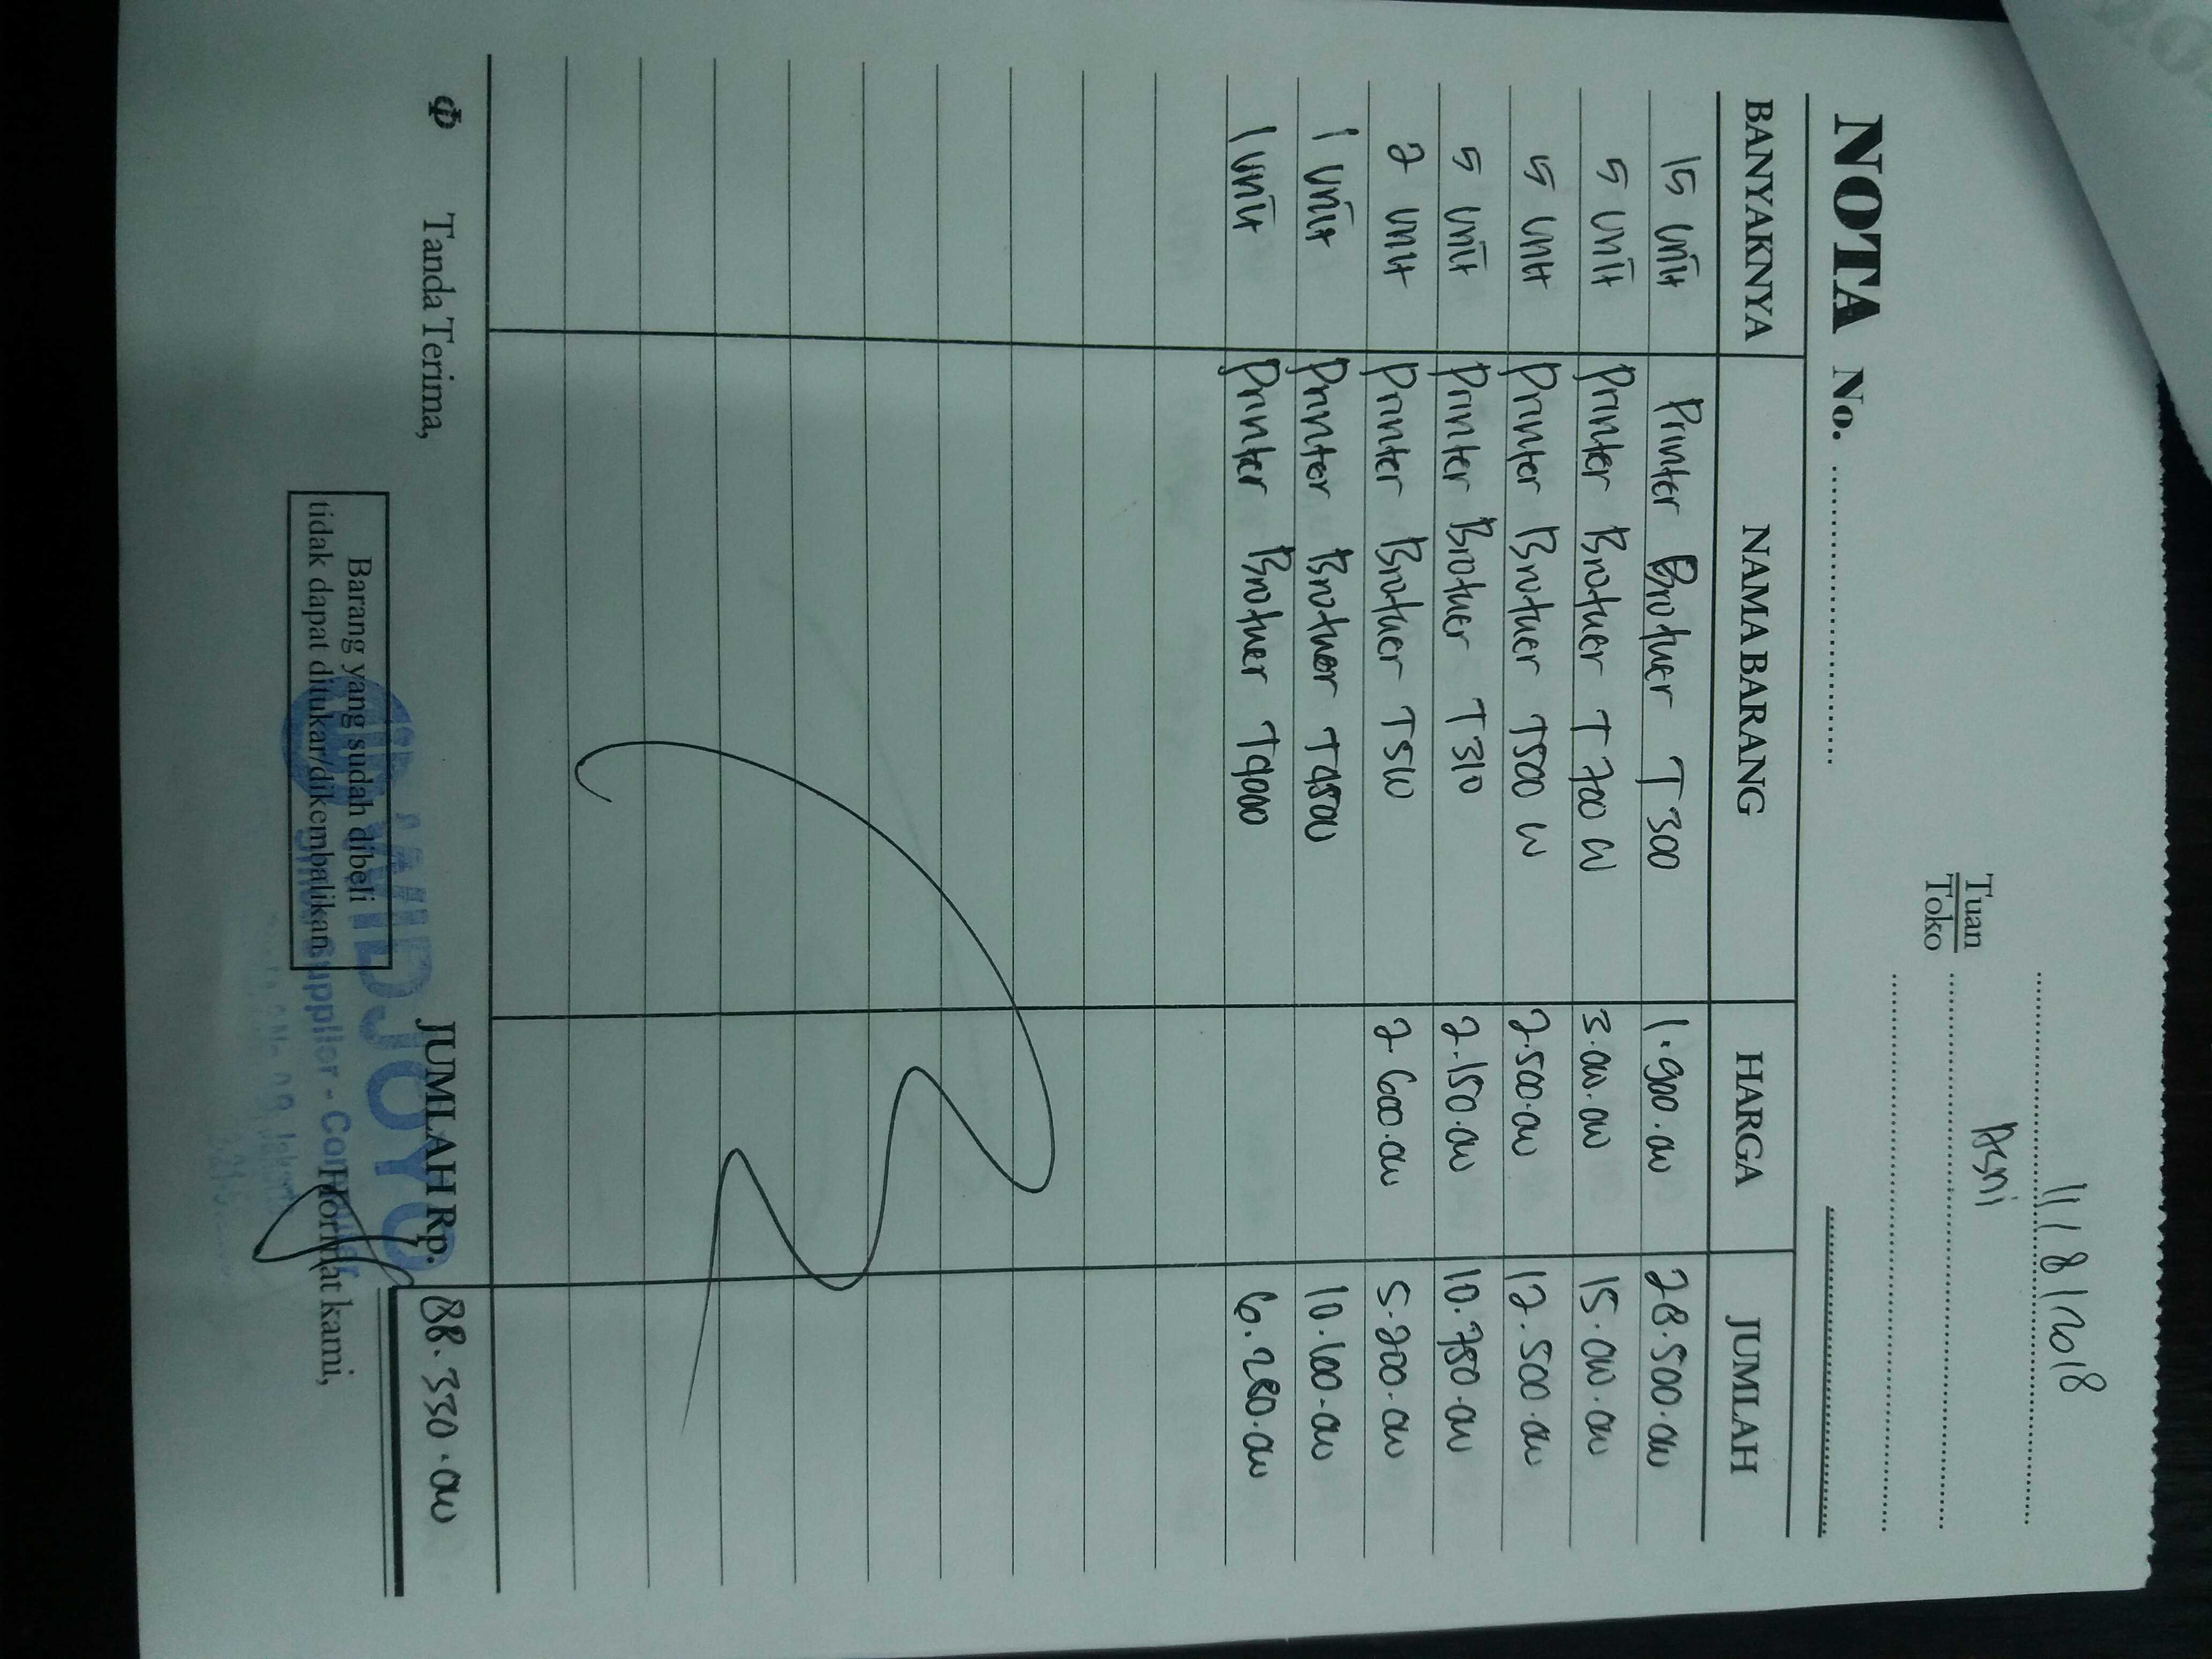 11/8/2018
Tuan
Toko
Asni
NOTA No.
BANYAKNYA NAMA BARANG HARGA JUMLAH
15 unit Printer Brother T300 1.900.000 28.500.000
5 unit Printer Brother T700 W 3.000.000 15.000.000
5 unit Printer Brother T500 W 2.500.000 12.500.000
5 unit Printer Brother T310 2.150.000 10.750.000
2 unit Printer Brother T510 2.600.000 5.200.000
1 unit Printer Brother T4500 10.100.000
1 unit Printer Brother T4000 6.280.000
JUMLAH Rp. 88.330.000
Tanda Terima,
Barang yang sudah dibeli
tidak dapat ditukar/dikembalikan
Hormat kami,
WIDJOYO
Supplier -